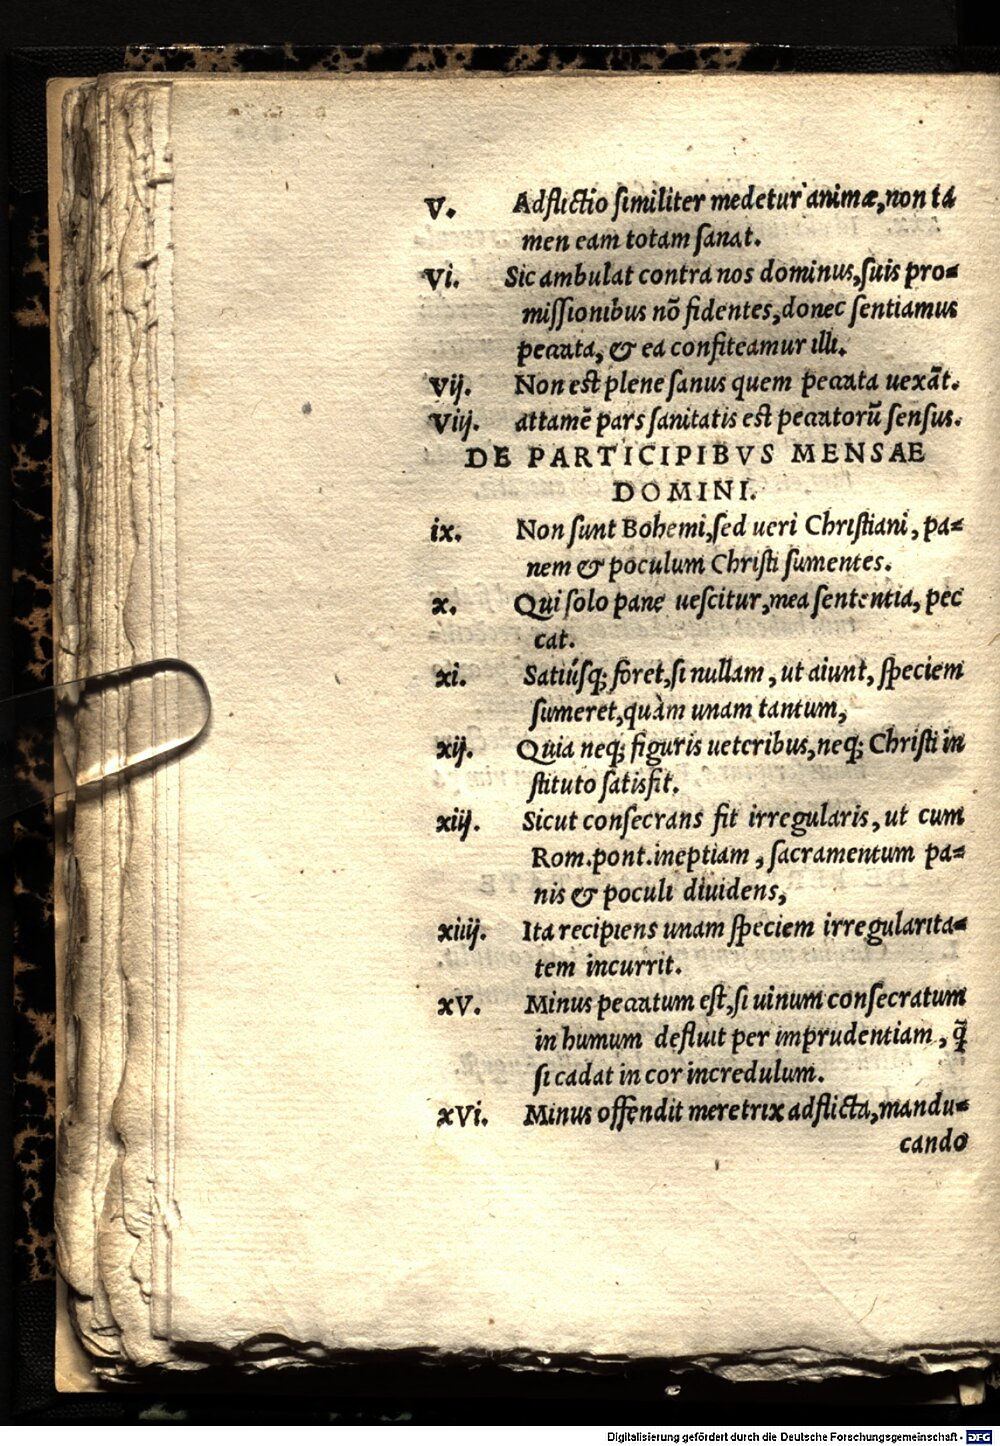 V. Adflictio ſimiliter medetur animæ, non tā
men eam totam ſanat.
Vi. Sic ambulat contra nos dominus, ſuis pro⸗
miſſionibus nō fidentes, donec ſentiamus
peccata, & ea confiteamur illi.
Vij. Non est plene ſanus quem peccata uexāt.
Viij. attamē pars ſanitatis est peccatorū ſenſus.
DE PARTICIPIBVS MENSAE
DOMINI.
ix. Non ſunt Bohemi, ſed ueri Chriſtiani, pa⸗
nem & poculum Chriſti ſumentes.
x. Qui ſolo pane ueſcitur, mea ſententia, pec
cat.
xi. Satiúsq; foret, ſi nullam, ut aiunt, ſpeciem
ſumeret, quàm unam tantum,
xij. Quia neq; figuris ueteribus, neq; Chriſti in
ſtituto ſatisfit.
xiij. Sicut conſecrans fit irregularis, ut cum
Rom. pont. ineptiam, ſacramentum pa⸗
nis & poculi diuidens,
xiiij. Ita recipiens unam ſpeciem irregularita⸗
tem incurrit.
xV. Minus peccatum est, ſi uinum conſecratum
in humum defluit per imprudentiam, q̄
ſi cadat in cor incredulum.
xVi. Minus offendit meretrix adflicta, mandu⸗
cando
Digitalisierung gefördert durch die Deutsche Forschungsgemeinschaft - DFG